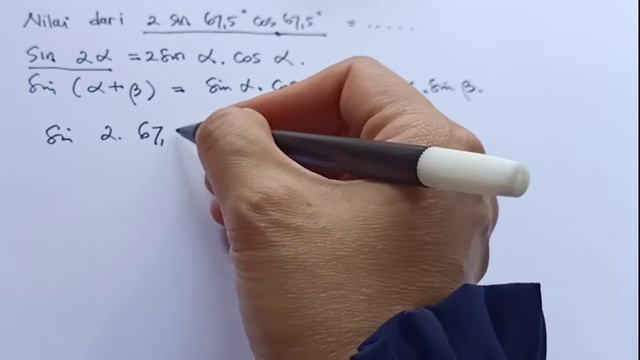 Nilai dari 2 sin 67,5° cos 67,5° = .....
Sin 2α = 2 Sin α . cos α .
Sin (α + β) = Sin α . co . sin β .
Sin 2 . 67,